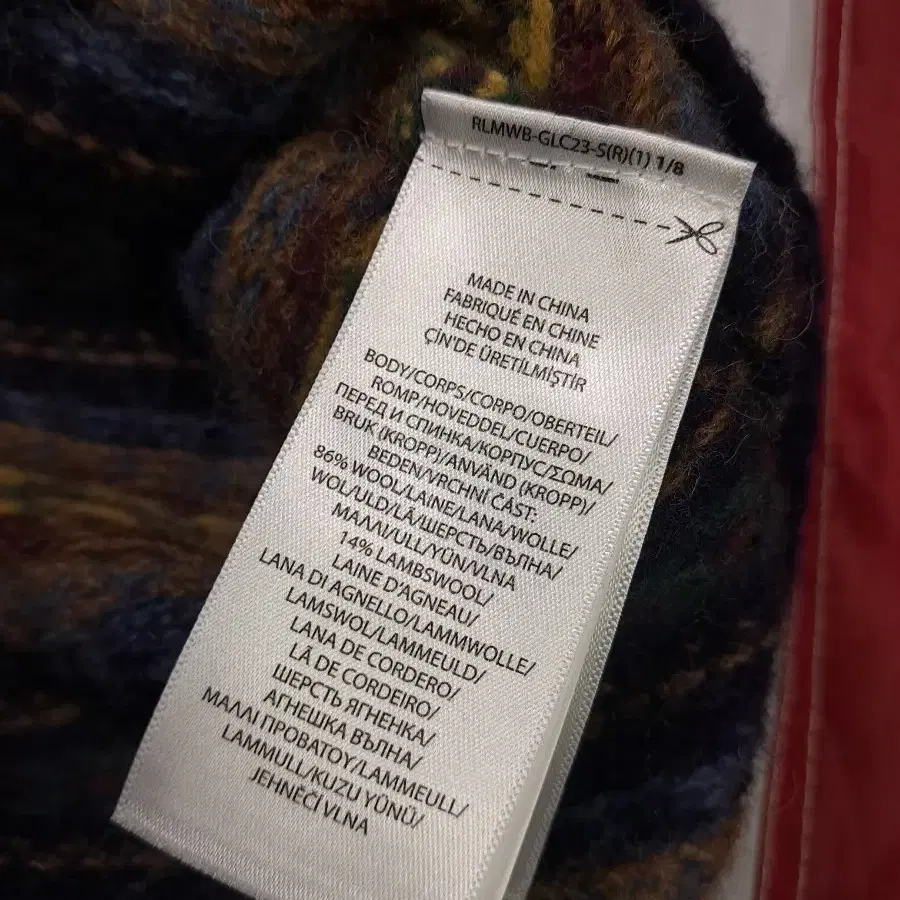 RLMWB-GLC23-S(R)(1) 1/8
MADE IN CHINA
FABRIQUÉ EN CHINE
HECHO EN CHINA
ÇİN'DE ÜRETİLMİŞTİR
BODY/CORPS/CORPO/OBERTEIL/
ROMP/HOVEDDEL/CUERPO/
ПЕРЕД И СПИНКА/КОРПУС/ΣΩΜΑ/
BRUK (KROPP)/ANVÄND (KROPP)/
BEDEN/VRCHNÍ ČÁST:
86% WOOL/LAINE/LANA/WOLLE/
WOL/ULD/LÃ/ШЕРСТЬ/ВЪЛНА/
ΜΑΛΛΙ/ULL/YÜN/VLNA
14% LAMBSWOOL/
LAINE D'AGNEAU/
LANA DI AGNELLO/LAMMWOLLE/
LAMSWOL/LAMMEULD/
LANA DE CORDERO/
LÃ DE CORDEIRO/
ШЕРСТЬ ЯГНЕНКА/
АГНЕШКА ВЪЛНА/
ΜΑΛΛΙ ΠΡΟΒΑΤΟΥ/LAMMEULL/
LAMMULL/KUZU YÜNÜ/
JEHNĚČÍ VLNA